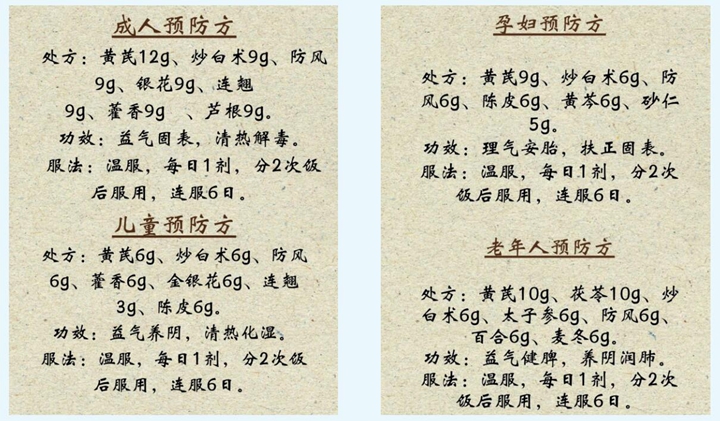 成人预防方
处方：黄芪12g、炒白术9g、防风
9g、银花9g、连翘
9g、藿香9g 、芦根9g。
功效：益气固表，清热解毒。
服法：温服，每日1剂，分2次饭
后服用，连服6日。
儿童预防方
处方：黄芪6g、炒白术6g、防风
6g、藿香6g、金银花6g、连翘
3g、陈皮6g。
功效：益气养阴，清热化湿。
服法：温服，每日1剂，分2次饭
后服用，连服6日。
孕妇预防方
处方：黄芪9g、炒白术6g、防
风6g、陈皮6g、黄芩6g、砂仁
5g。
功效：理气安胎，扶正固表。
服法：温服，每日1剂，分2次
饭后服用，连服6日。
老年人预防方
处方：黄芪10g、茯苓10g、炒
白术6g、太子参6g、防风6g、
百合6g、麦冬6g。
功效：益气健脾，养阴润肺。
服法：温服，每日1剂，分2次
饭后服用，连服6日。